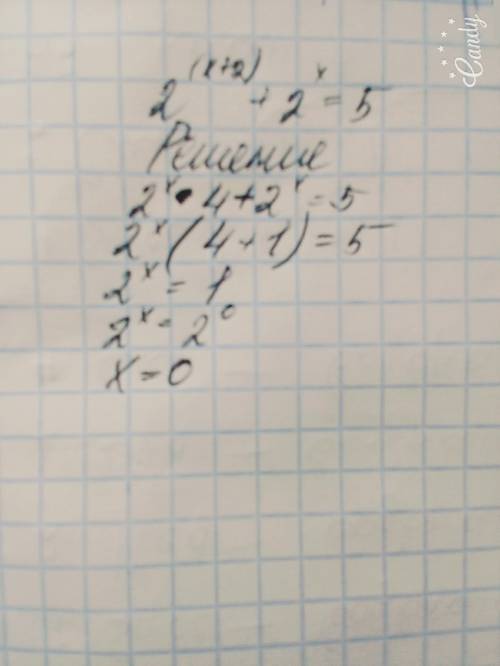 Candy
2^(x+2) + 2^x = 5
Решение
2^x • 4 + 2^x = 5
2^x (4 + 1) = 5
2^x = 1
2^x = 2^0
x = 0